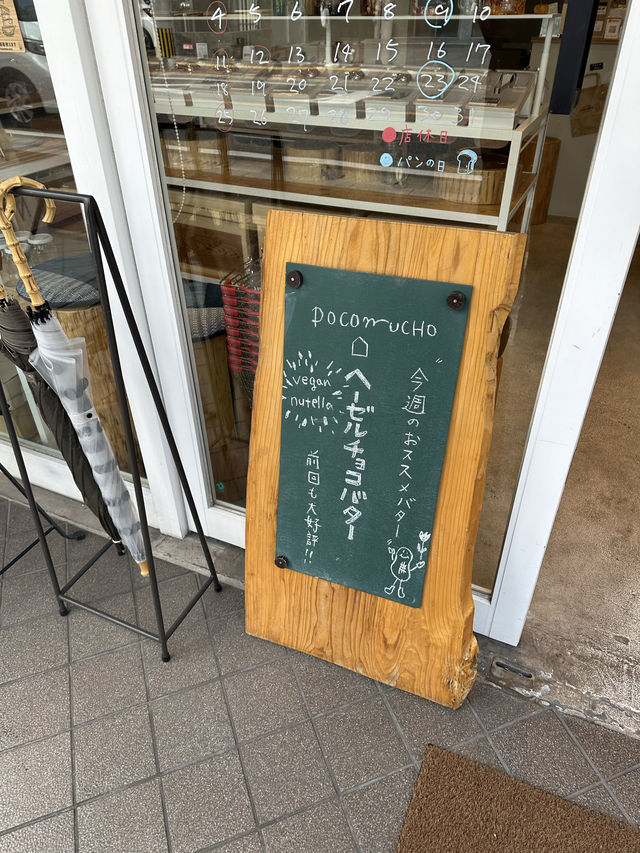 4 5 6 7 8 9 10
11 12 13 14 15 16 17
18 19 20 21 22 23 24
25 26 27 28 29 30 31
店休日
パンの日
pocomucho
"今週のおススメバター"
ヘーゼルチョコバター
vegan
nutella
前回も大好評!!